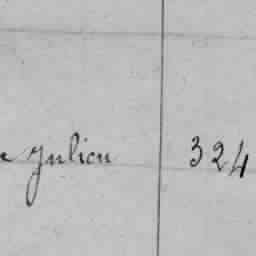 Julien 324